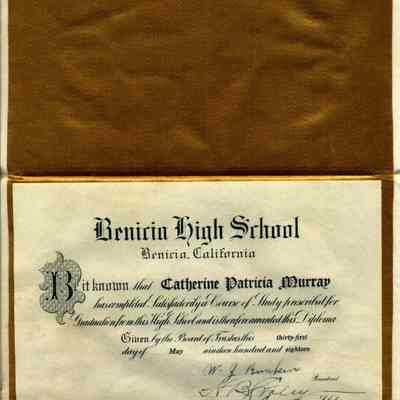 Benicia High School
Benicia, California
Be it known that Catherine Patricia Murray
has completed Satisfactorily a Course of Study prescribed for
Graduation from this High School and is therefore awarded this Diploma
Given by the Board of Trustees this thirty-first
day of May nineteen hundred and eighteen
W. J.
President